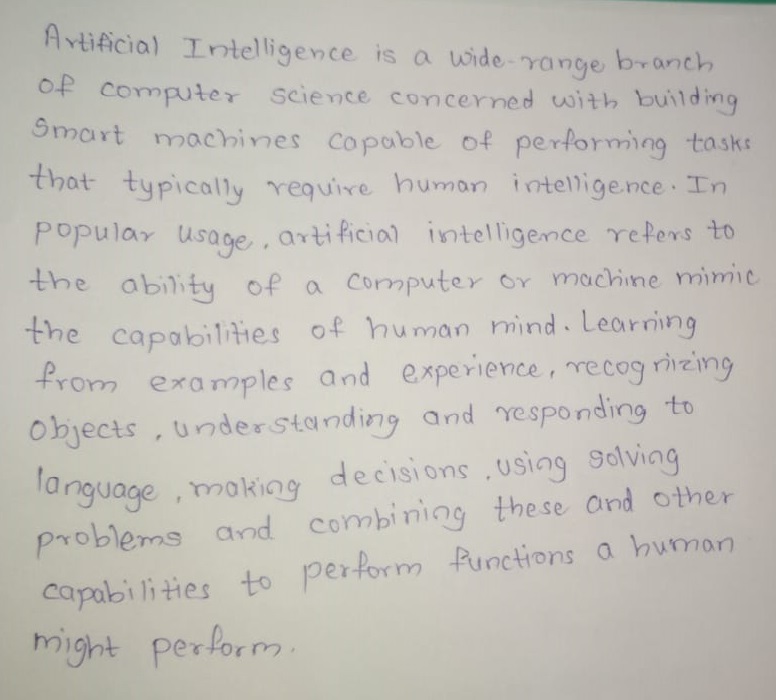 Artificial Intelligence is a wide-range branch
of computer science concerned with building
Smart machines capable of performing tasks
that typically require human intelligence. In
popular usage, artificial intelligence refers to
the ability of a computer or machine mimic
the capabilities of human mind. Learning
from examples and experience, recognizing
objects, understanding and responding to
language, making decisions, using solving
problems and combining these and other
capabilities to perform functions a human
might perform.